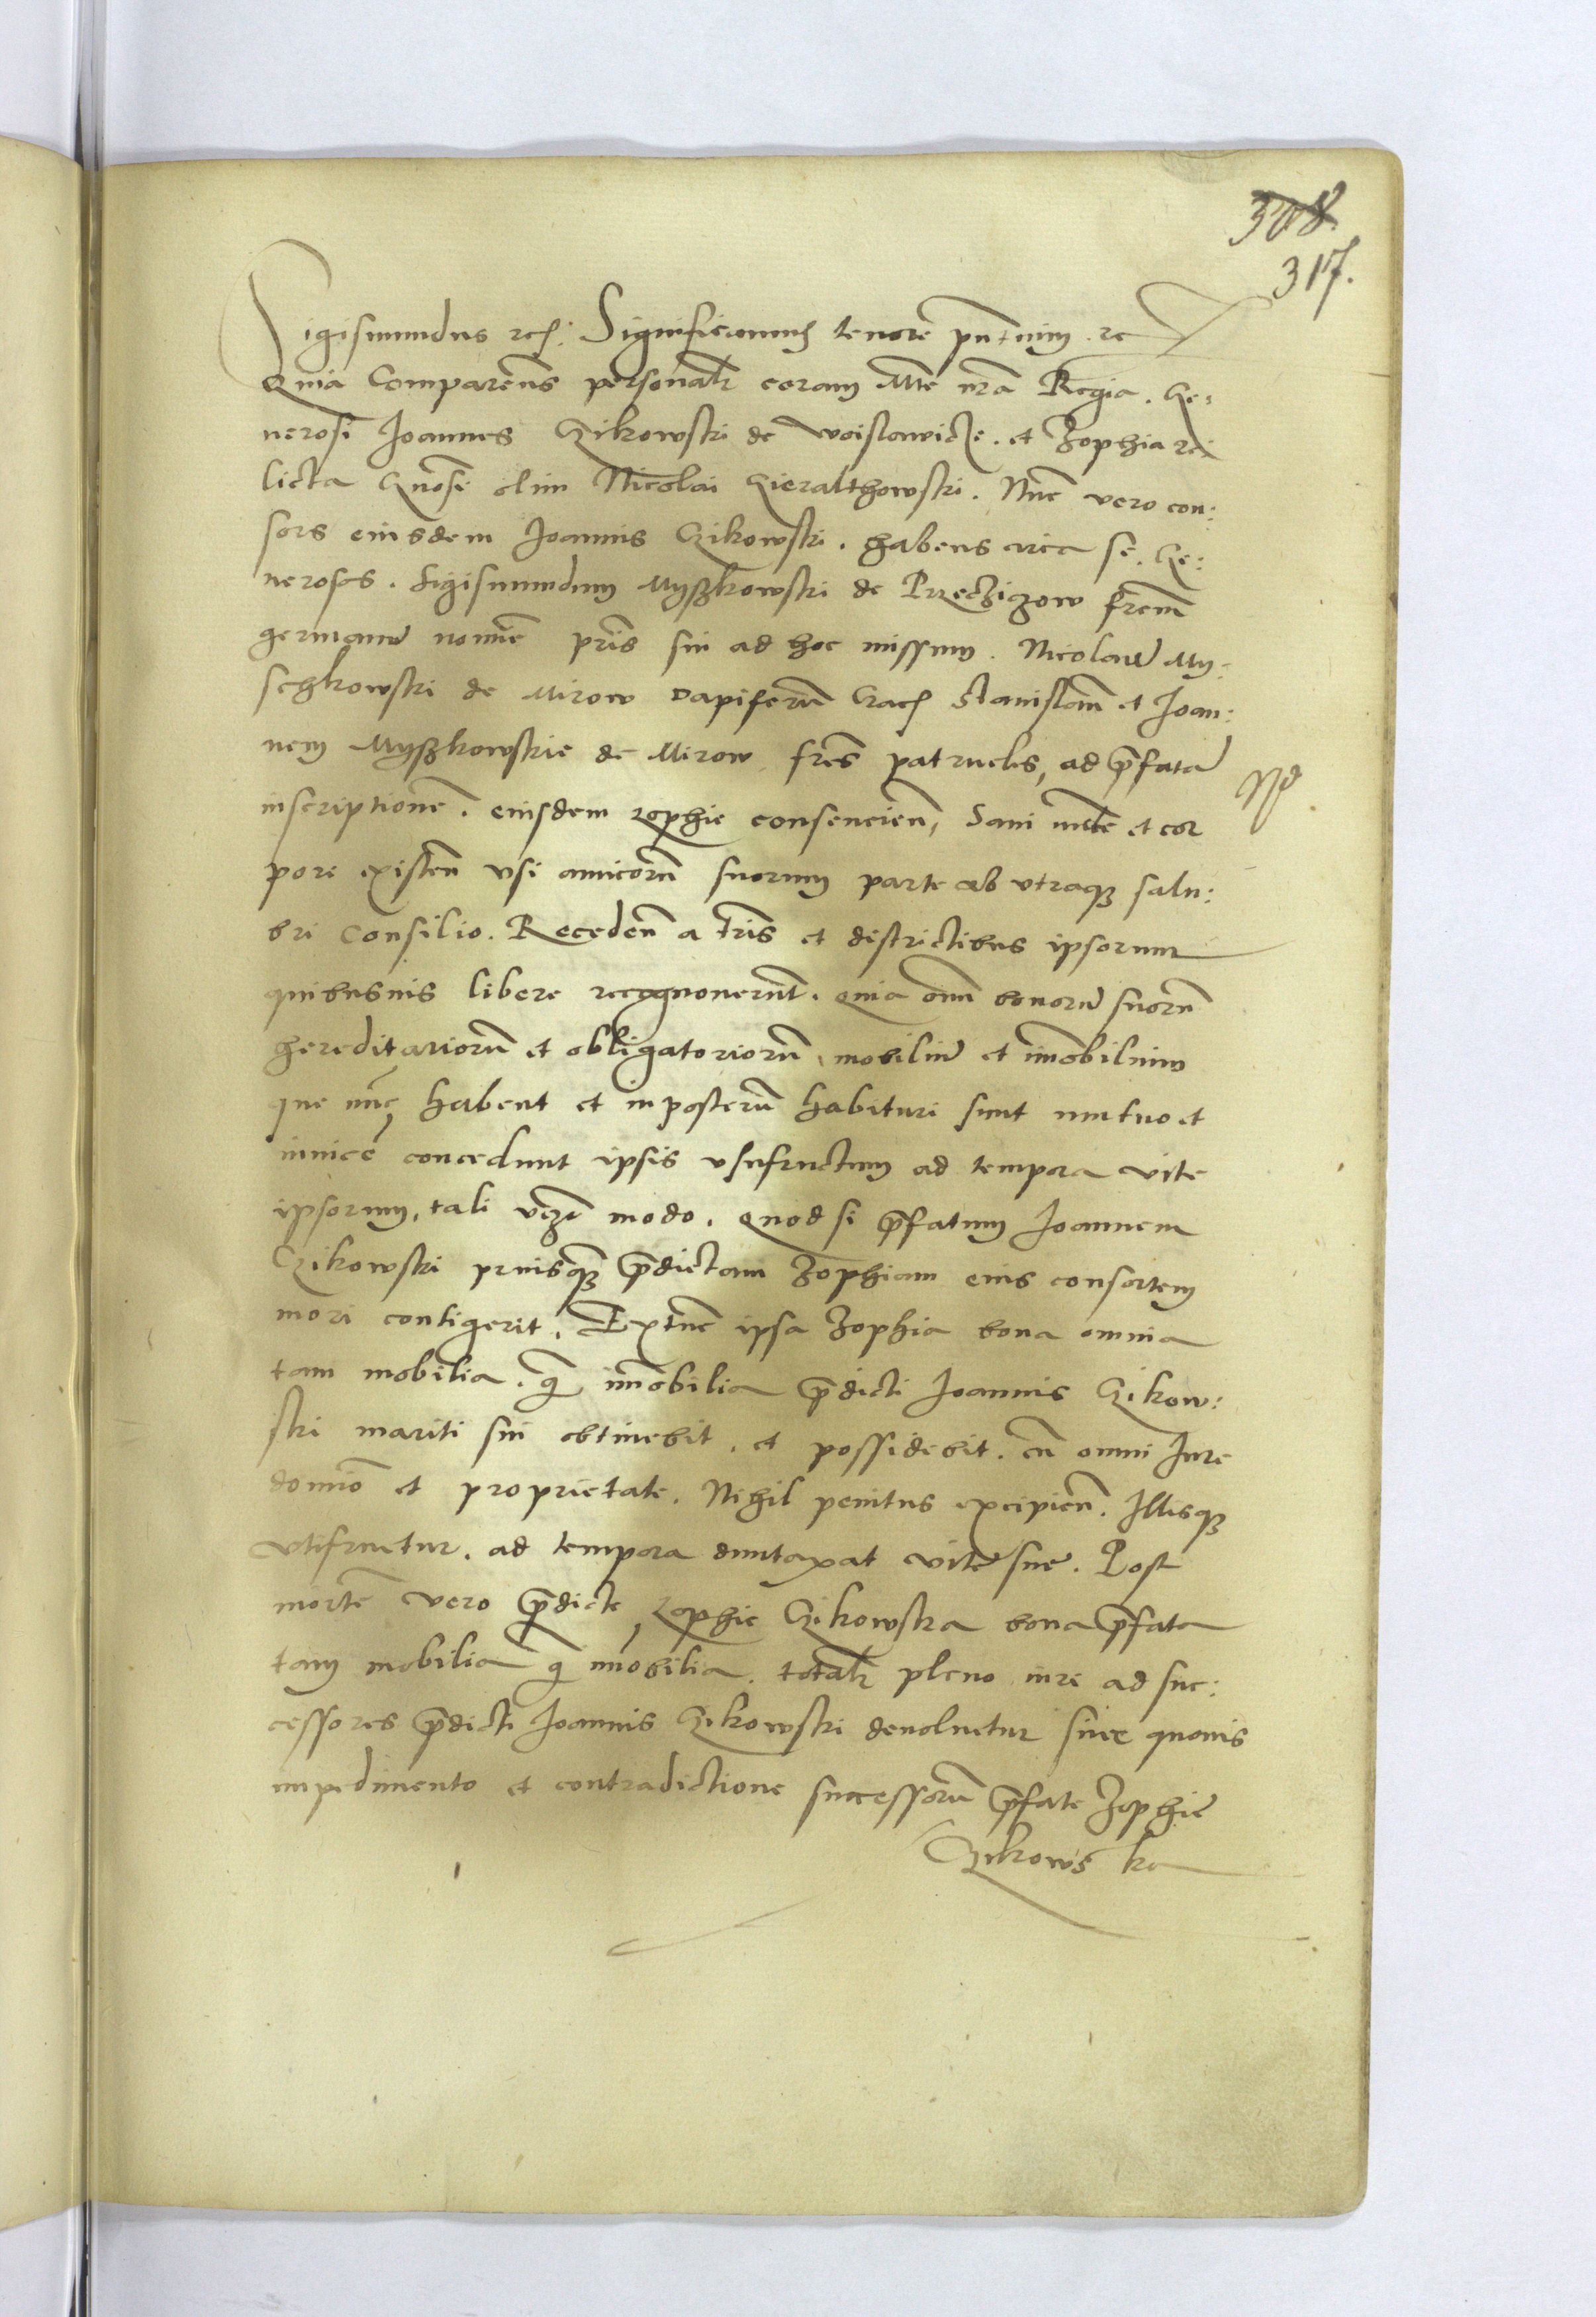 308.
317.
Sigismundus rex: Significamus tenore pñtium. rc
Quia Comparens personalr coram Mte nrã Regia. Ge:
nerosi Joannes Czikowski de Woislawicze. et Zophia re:
licta Gnõsi olim Nicolai Gieralthowski. Nũc vero con:
sors eiusdem Joannis Czikowski. habens circa se. Ge:
nerosos. Sigismundum Myßkowski de Przecziszow frẽm
germanũ nomĩe pr̃is sui ad hoc missum. Nicolaũ My:
schkowski de Mirow dapiferũ Crac̃ Stanislaũ et Joan:
nem Myßkowskie de Mirow fr̃es patrueles, ad p̃fatã
inscriptionẽ. eiusdem zophie consencieñ, Sani mẽte et cor
pore existeñ vsi amicorũ suorum parte ab vtraqȝ salu:
bri Consilio. Recedeñ a tr̃is et districtibus ipsorum
quibusuis libere recognouerũt. Quia oĩm bonorũ suorũ
hereditariorũ et obligatoriorũ, mobiliũ et im̃obilium
que nũc habent et in posterũ habituri sunt mutuo et
inuicẽ concedunt ipsis vsufructum ad tempora vite
ipsorum, tali vcȝ modo. Quod si p̃fatum Joannem
Czikowski priusqȝ p̃dictam Zophiam eius consortem
mori contigerit. Extũc ipsa Zophia bona omnia
tam mobilia. q̃ im̃obilia p̃dicti Joannis Czikow:
ski mariti sui obtinebit. et possidebit. cũ omni Jure
dom̃io et proprietate. Nihil penitus excipieñ. Illisqȝ
vtifruetur. ad tempora duntaxat vite sue. Post
mortẽ vero p̃dicte zophie Czikowska bona p̃fata
tam mobilia q̃ im̃obilia. totalr pleno iure ad suc:
cessores p̃dicti Joannis Czikowski deuoluetur sine quouis
impedimento et contradictione successorũ p̃fate Zophie
Czikows ka